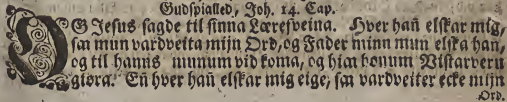 Gudspialled, Joh. 14. Cap.
OG Jesus sagde til sinna Læresveina. Hver hañ elskar mig,
sa mun vardveita mijn Ord, og Fader minn mun elska hañ,
og til hanns munum vid koma, og hiaa honum Vistarveru
giøra. Eñ hver hañ elskar mig eige, sa vardveiter ecke mijn
Ord.